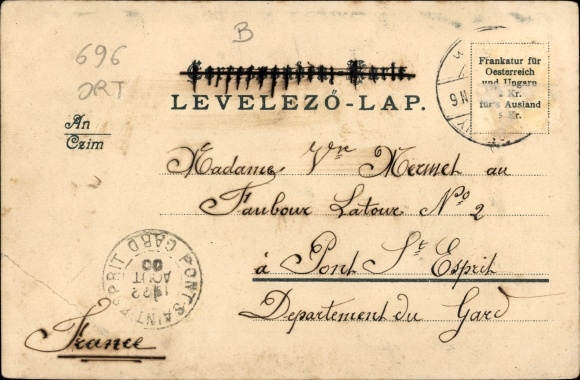 696
ORT
B
Correspondenz-Karte.
LEVELEZŐ-LAP.
Frankatur für
Oesterreich
und Ungarn
2 Kr.
für's Ausland
5 Kr.
An
Czim
Madame Vve Mermet au
Faubour Latour No 2
à Pont St Esprit
Departement du Gard
France
PONT-SAINT-ESPRIT
GARD
22
AOUT
00